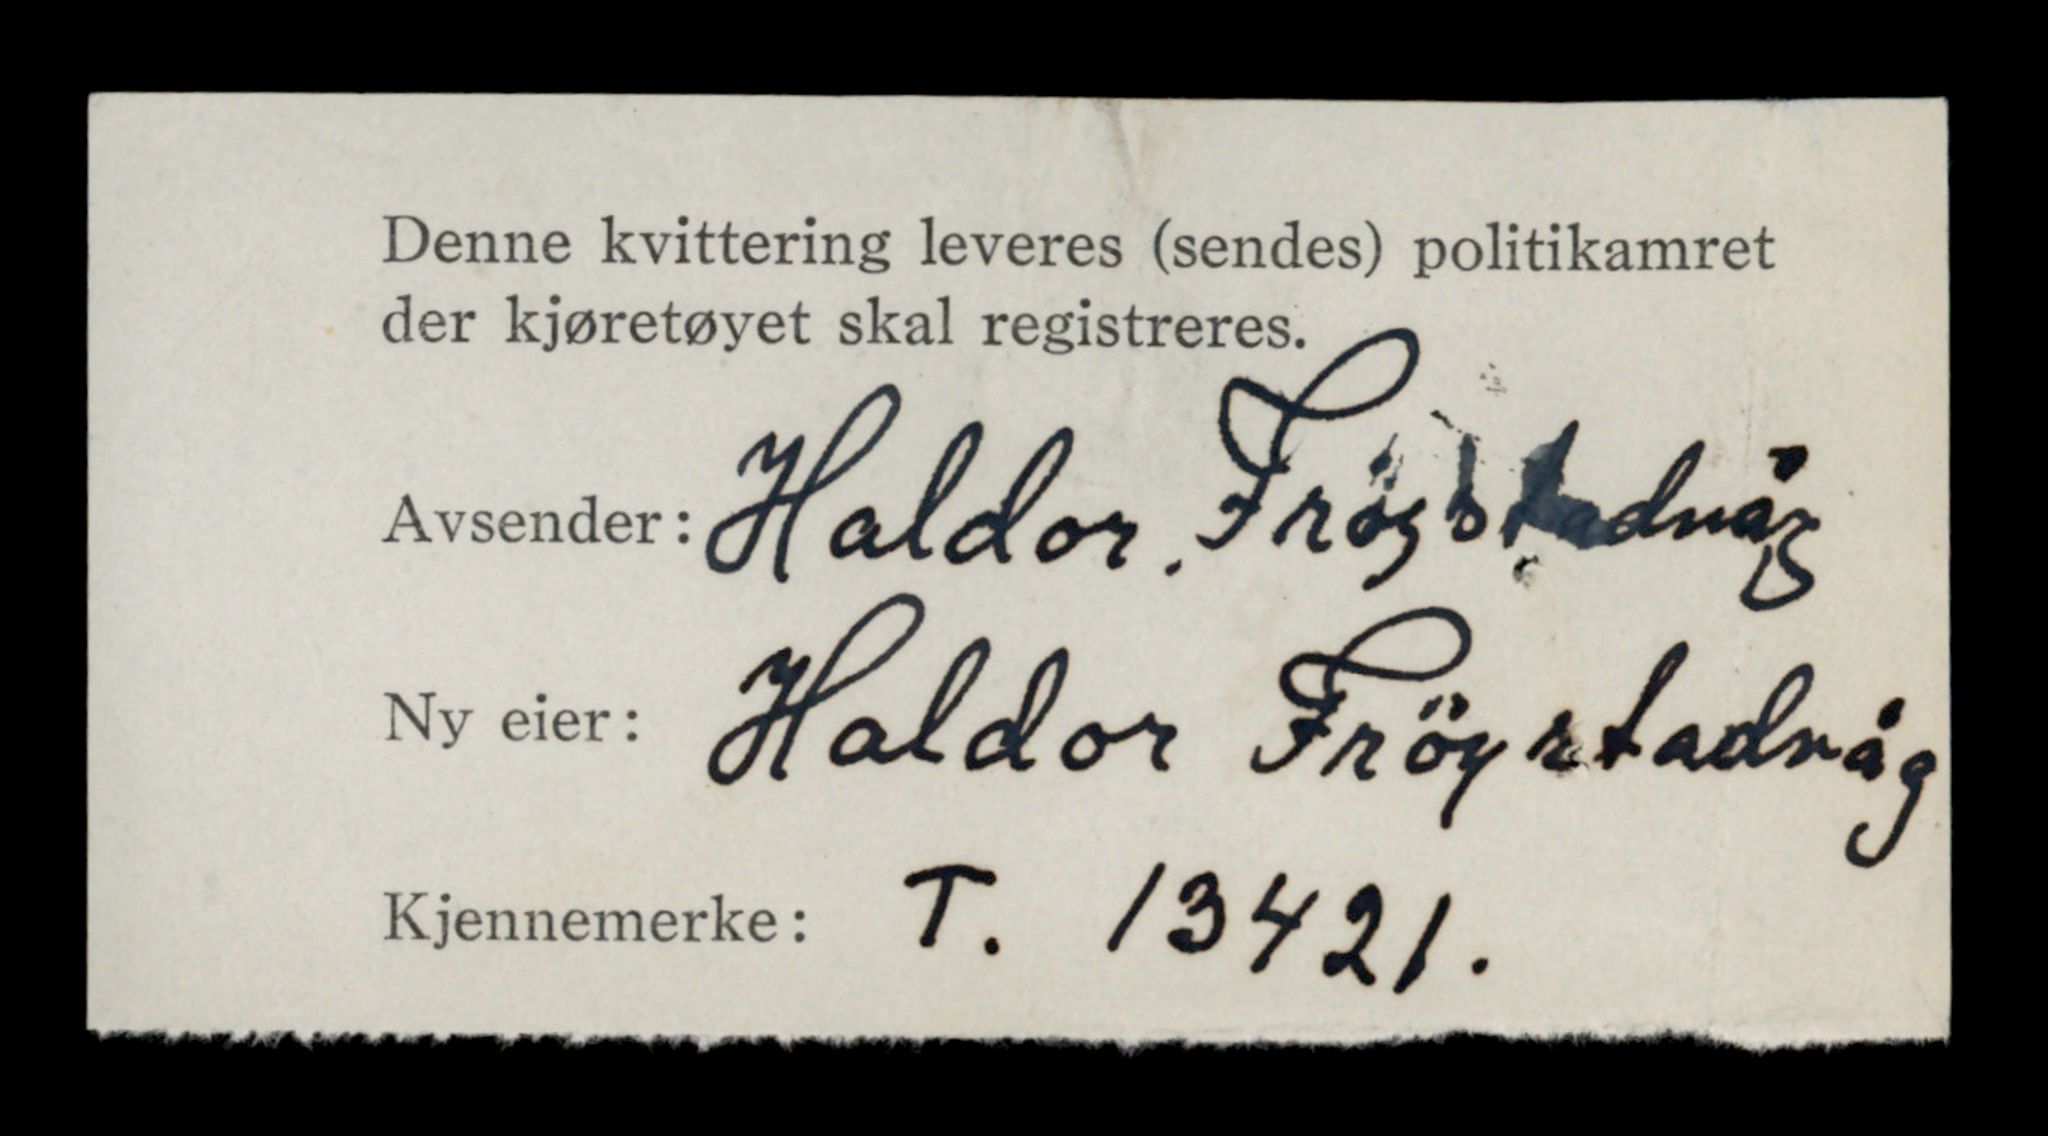 Denne kvittering leveres (sendes) politikamret
der kjøretøyet skal registreres.
Avsender: Haldor. Fröystadvåg
Ny eier: Haldor Fröystadvåg
Kjennemerke: T. 13421.